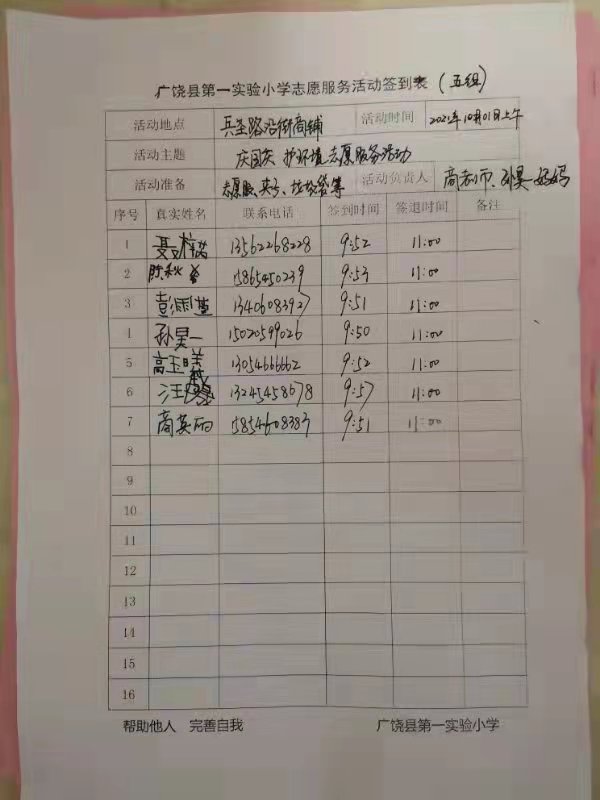 广饶县第一实验小学志愿服务活动签到表（五组）
活动地点 兵圣路沿街商铺 活动时间 2021年10月01日上午
活动主题 庆国庆 护环境 志愿服务活动
活动准备 志愿服、夹子、垃圾袋等 活动负责人 商老师、孙昊一妈妈
序号 真实姓名 联系电话 签到时间 签退时间 备注
1 聂梓诺 13562268228 9:52 11:00
2 陈秋 15865450239 9:53 11:00
3 彭雨萱 13406083927 9:51 11:00
4 孙昊一 15020599026 9:50 11:00
5 高玉 13054666662 9:52 11:00
6 汪 13245458678 9:57 11:00
7 商英丽 15854608383 9:51 11:00
8
9
10
11
12
13
14
15
16
帮助他人 完善自我 广饶县第一实验小学